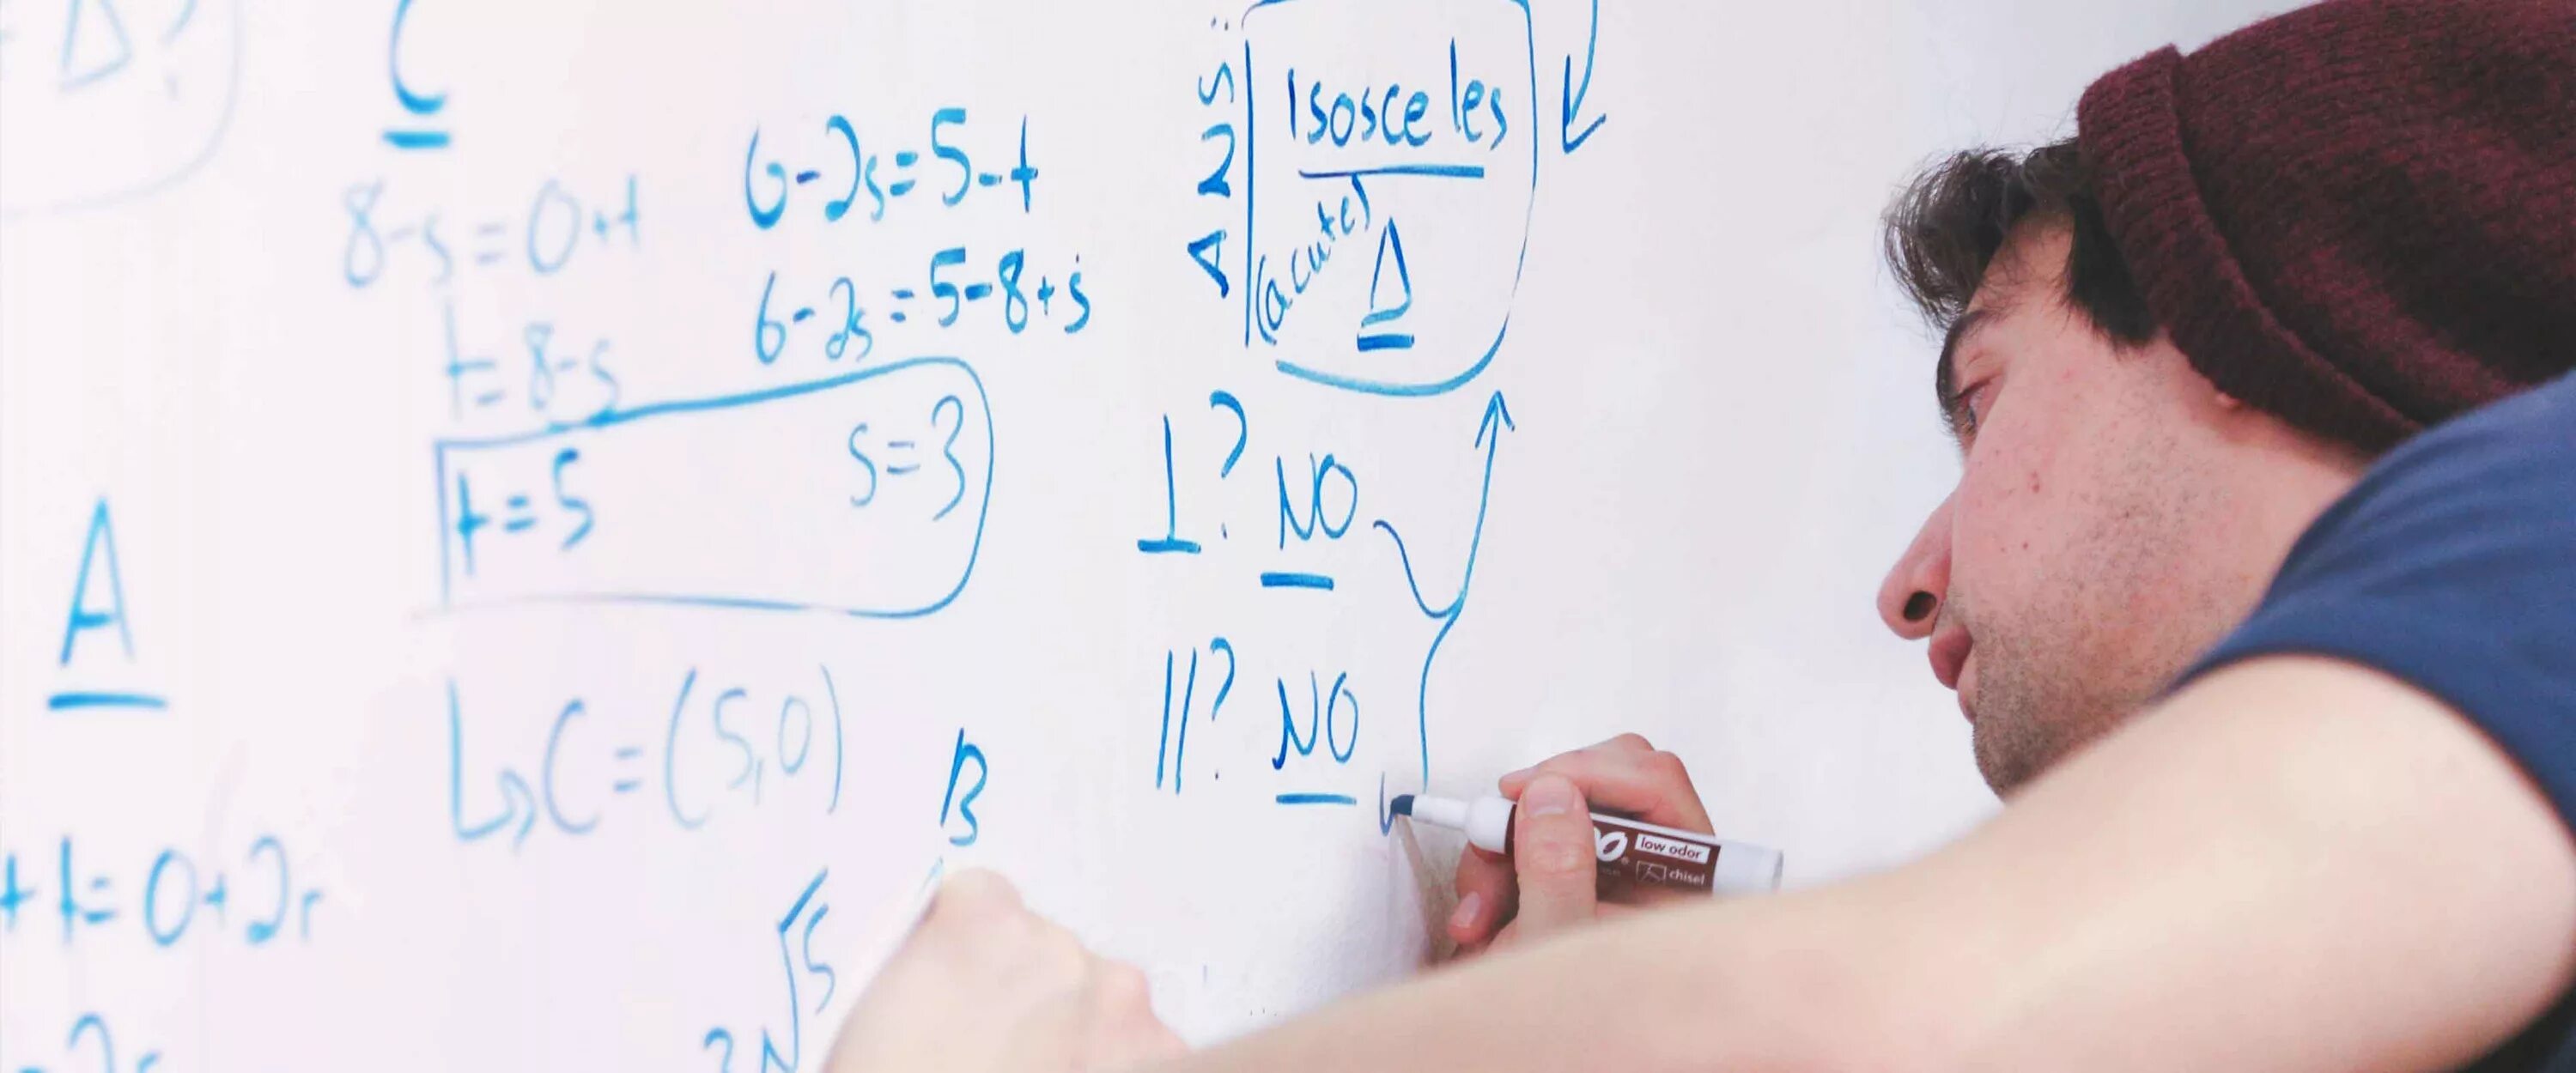 Δ?
C
8-s=0+t
t=8-s
6-2s=5-t
6-2s=5-8+s
t=5 s=3
↳C=(5,0)
A
+t=0+2r
B
√5
Isosceles
(acute)
Δ
⊥? NO
||? NO
low odor
chisel